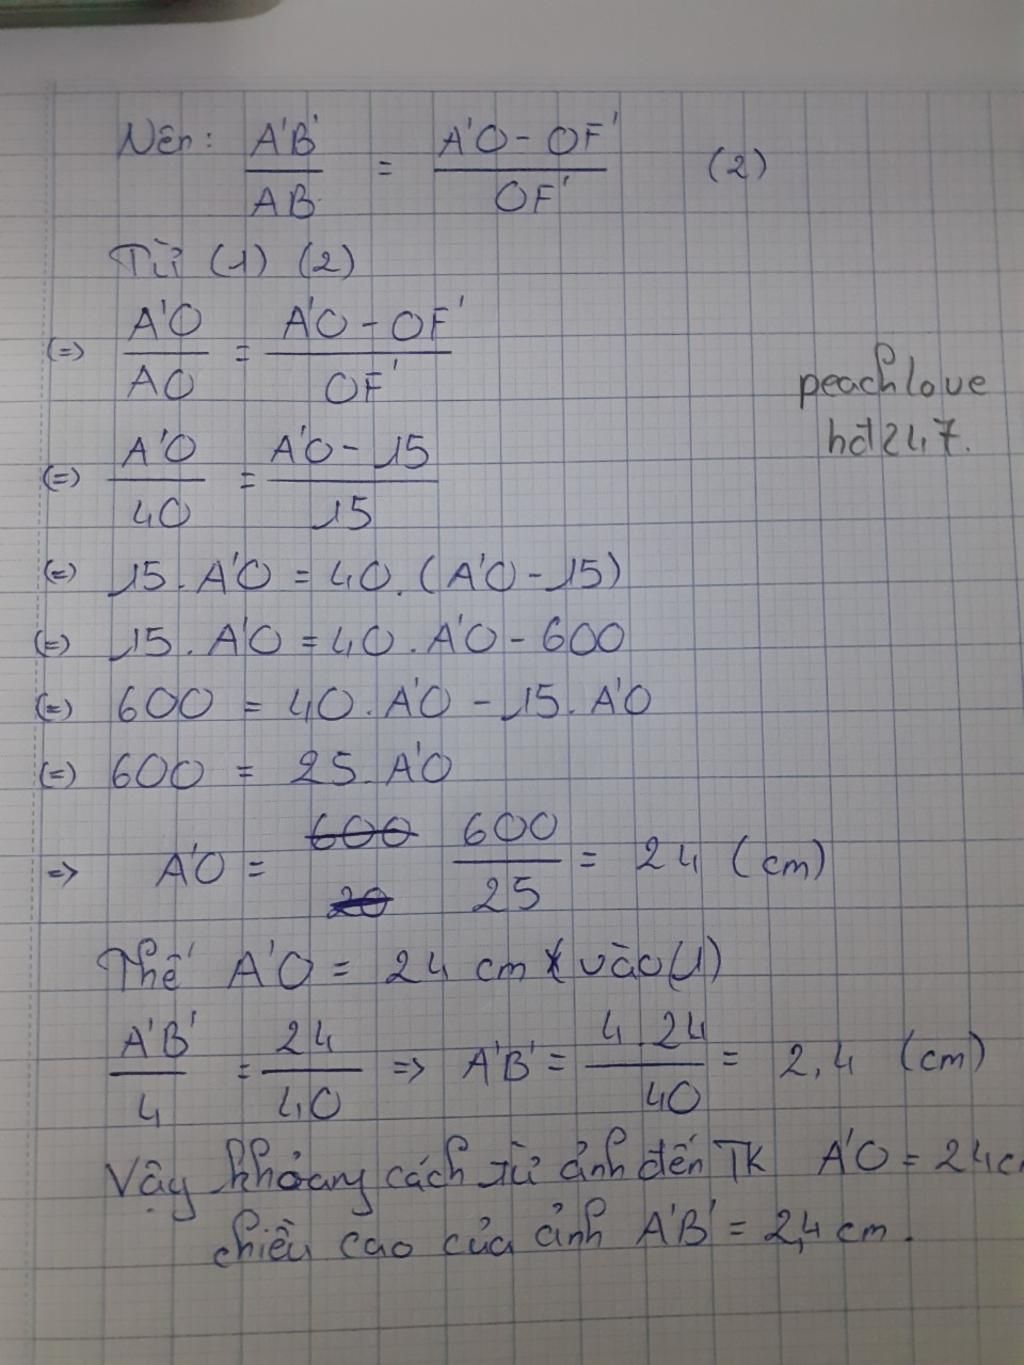 Nên: A'B'/AB = (A'O - OF')/OF' (2)
Từ (1) (2)
(=) A'O/AO = (A'O - OF')/OF'
peachlove
hđ247.
(=) A'O/40 = (A'O - 15)/15
(=) 15. A'O = 40. (A'O - 15)
(=) 15. A'O = 40. A'O - 600
(=) 600 = 40. A'O - 15. A'O
(=) 600 = 25. A'O
=> A'O = 600/20 600/25 = 24 (cm)
Thế A'O = 24 cm vào (1)
A'B'/4 = 24/40 => A'B' = 4.24/40 = 2,4 (cm)
Vậy khoảng cách từ ảnh đến TK A'O = 24cm
chiều cao của ảnh A'B' = 2,4 cm.